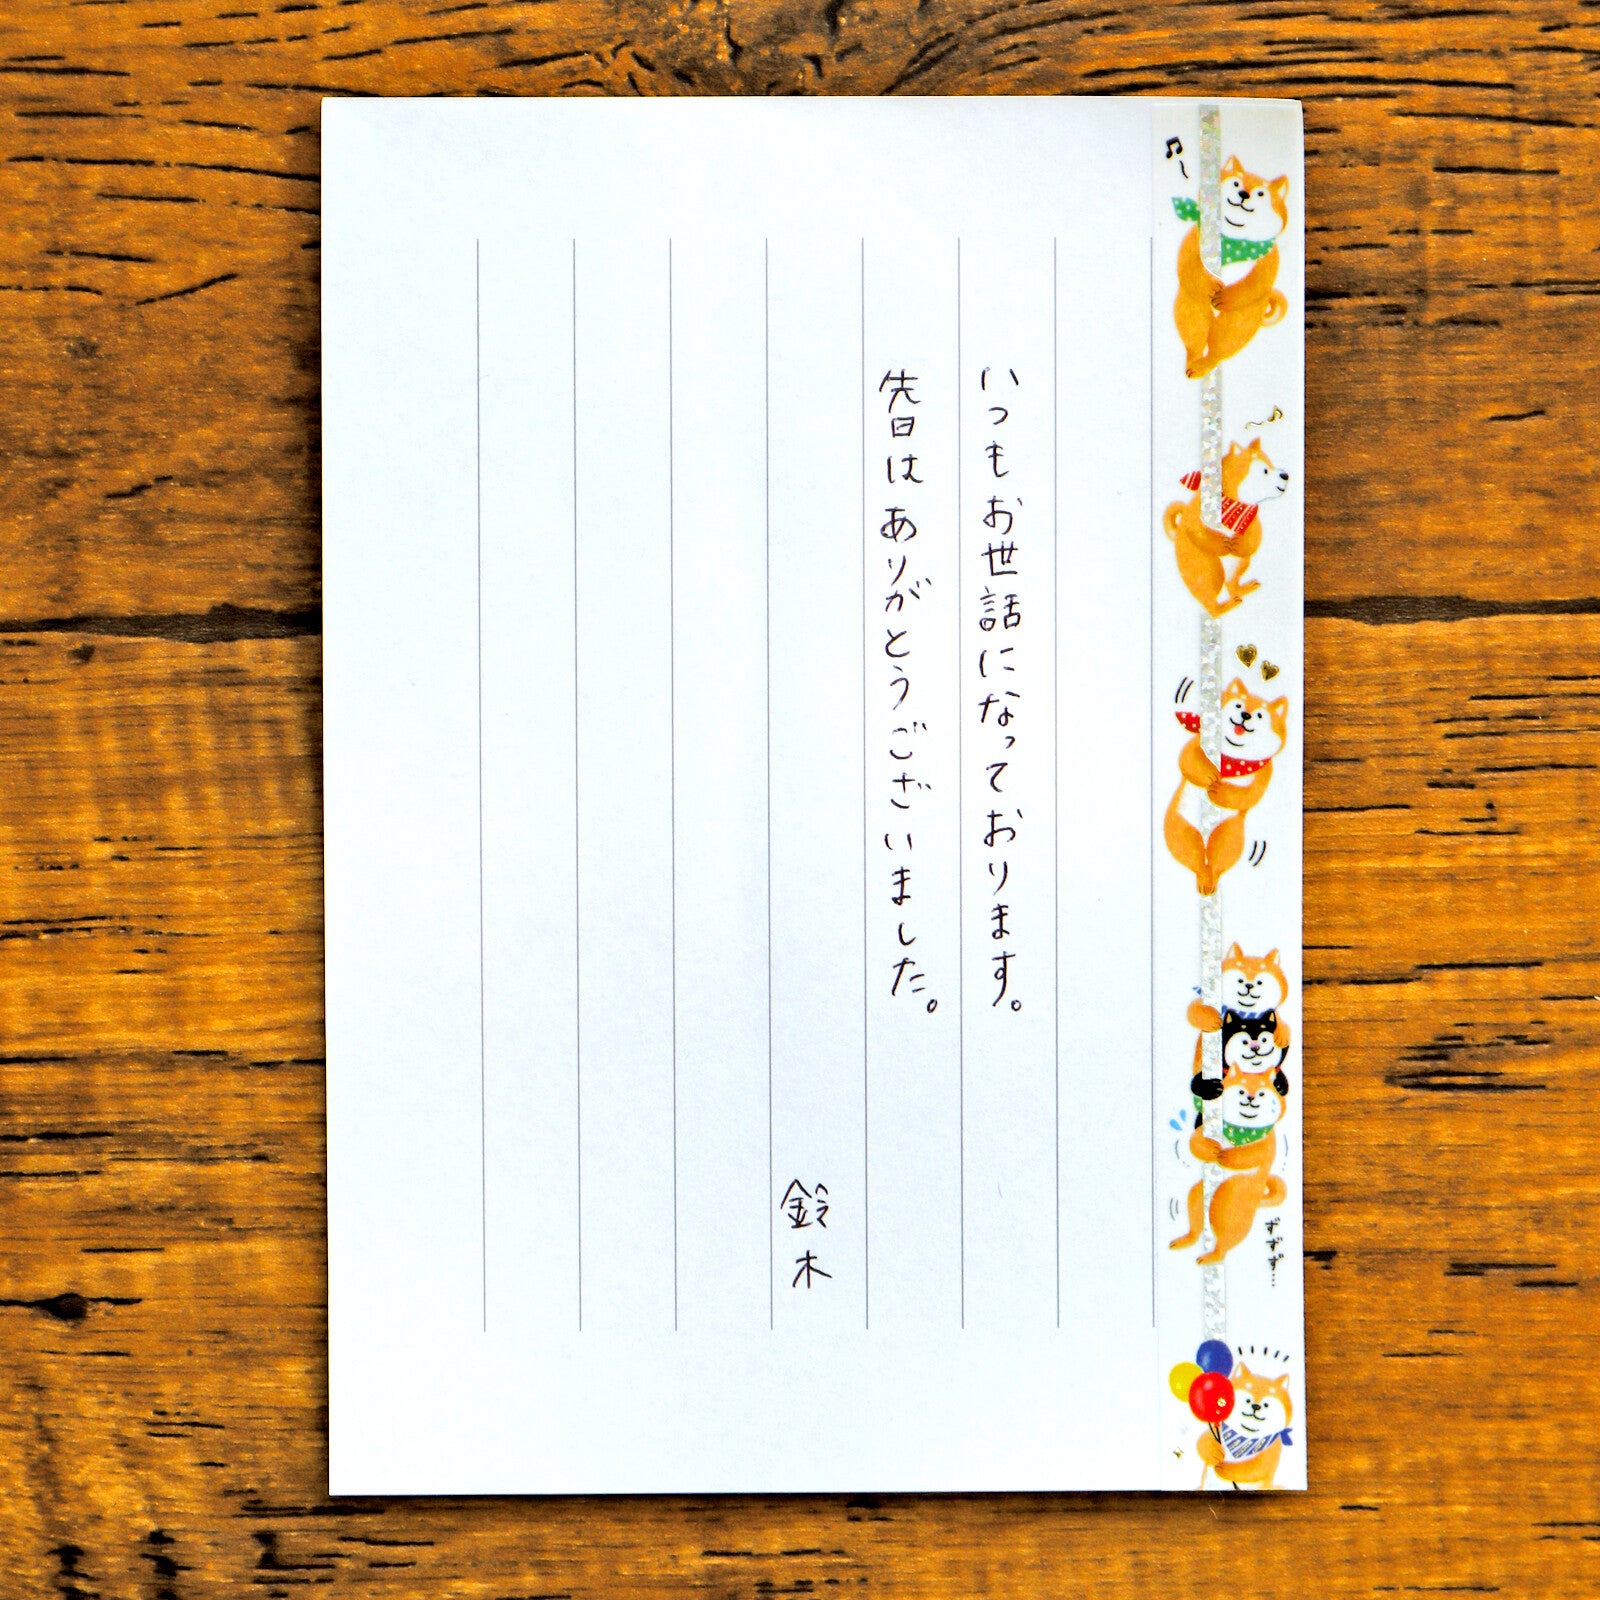 いつもお世話になっております。
先日はありがとうございました。
鈴木
ずずず…